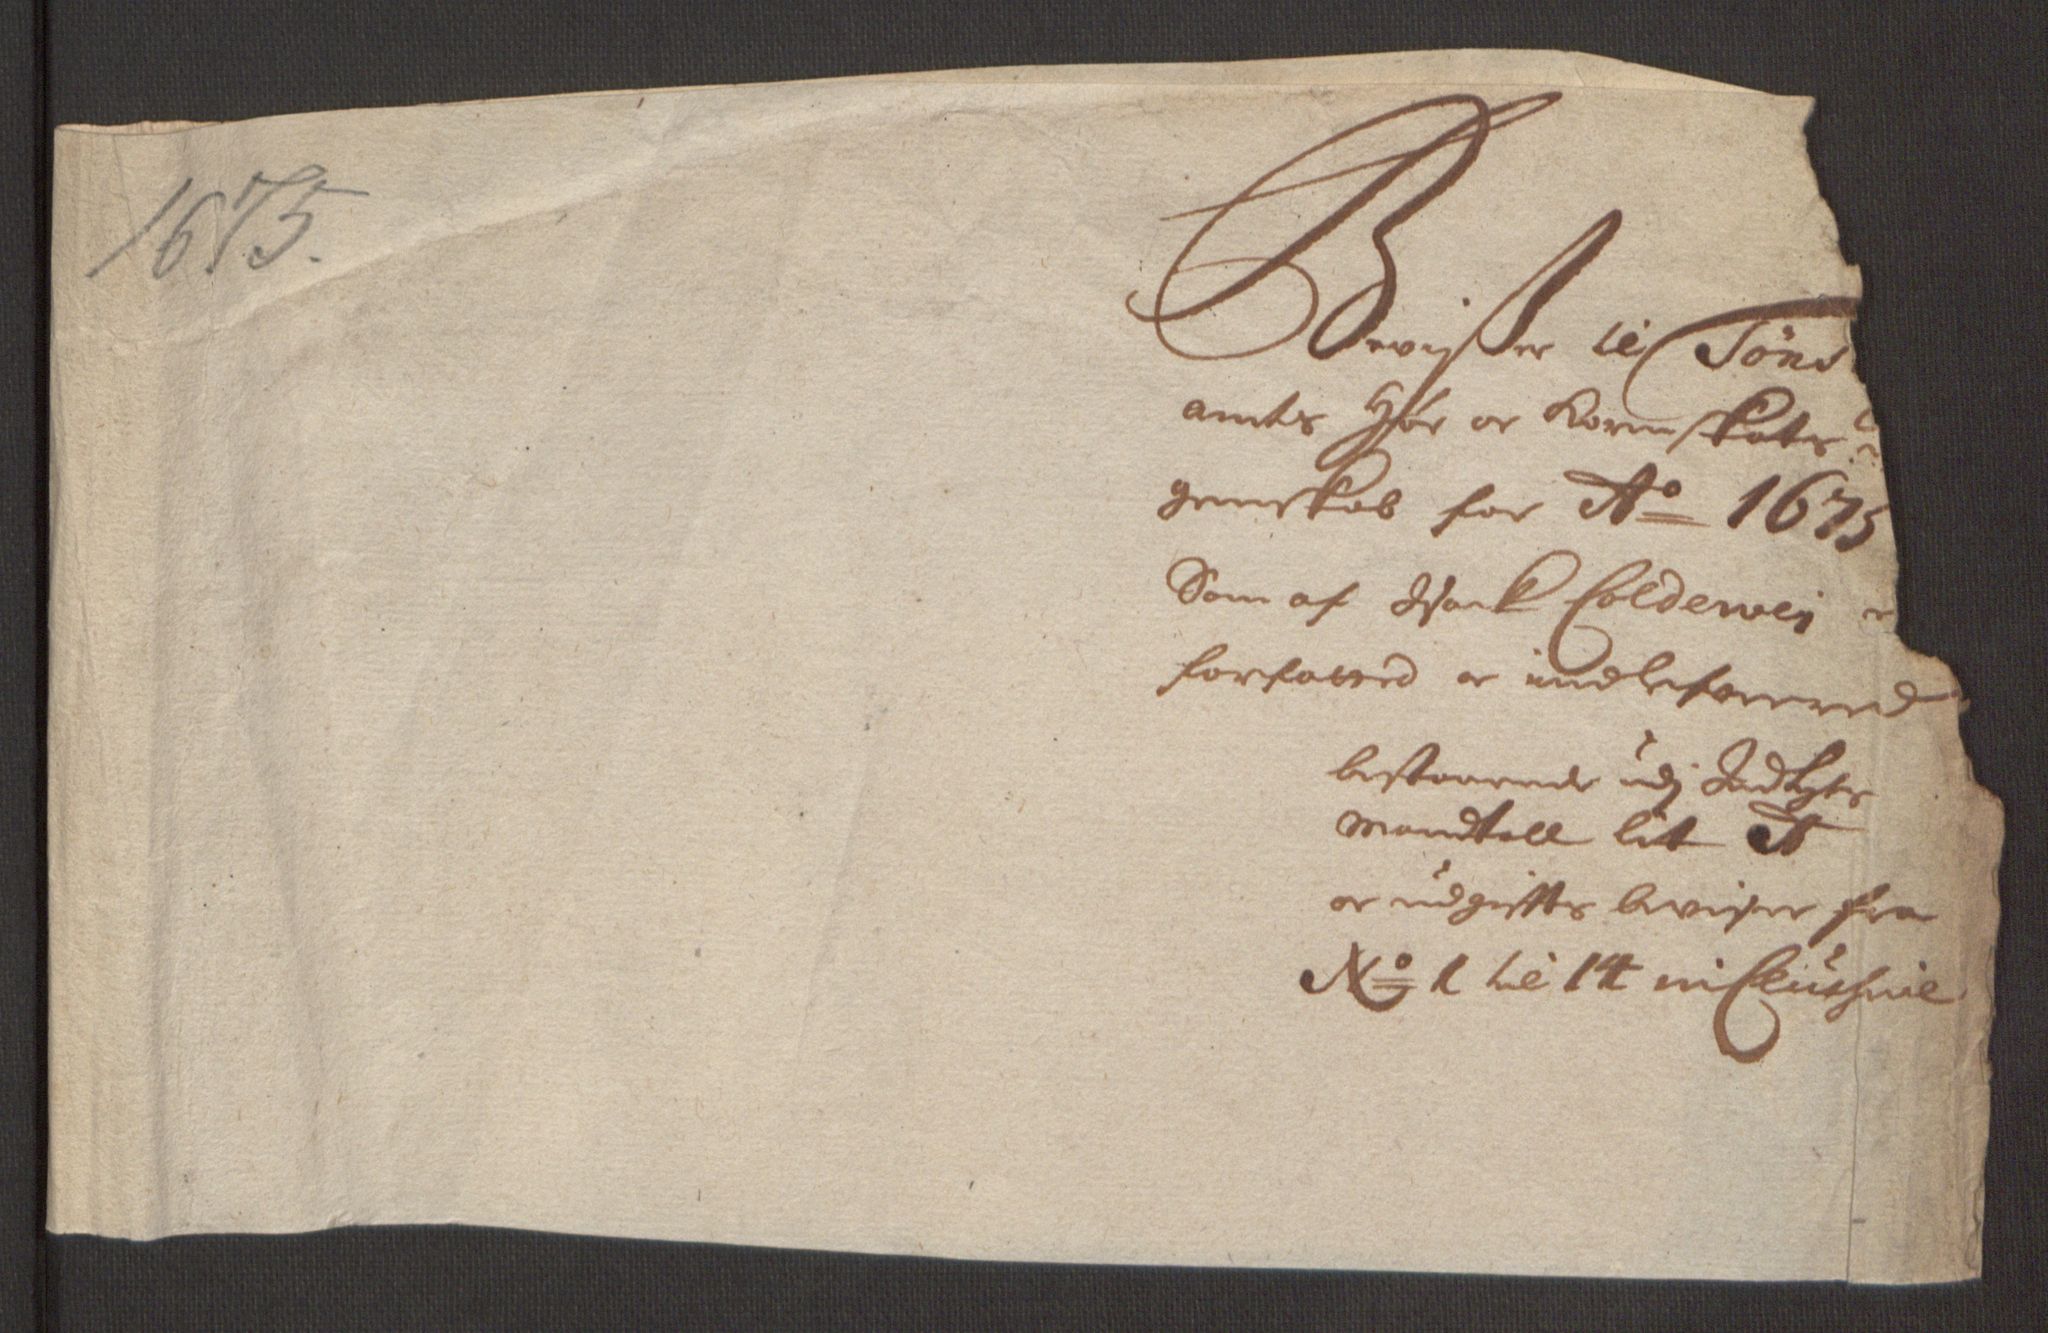 1675.
Bevißer til Tøns
amts Hør or Kornskats
genskab for Aº 1675
Som af Isack Coldewei
forfatted or indlefvereed
bestaaende udj Jndtegts
Mandtall lit A
or udgiffts beviser fra
Nº 1 til 14 inCluschive